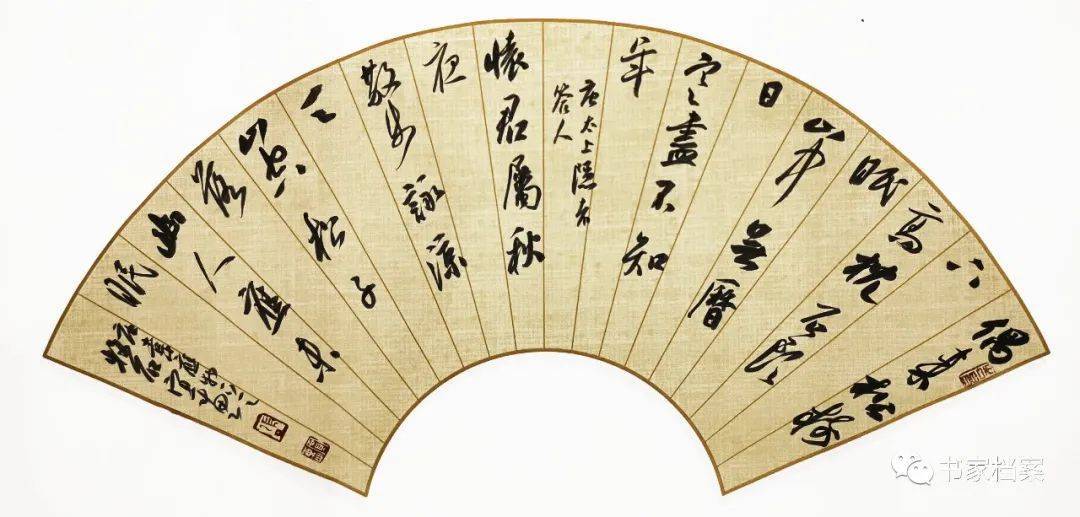 偶来松樹
下
高枕石頭
眠
山中無曆
日
寒盡不知
年
唐太上隱者
答人
懷君屬秋
夜
散步詠涼
天
山空松子
落
幽人應未
眠
唐韋應物
书家档案